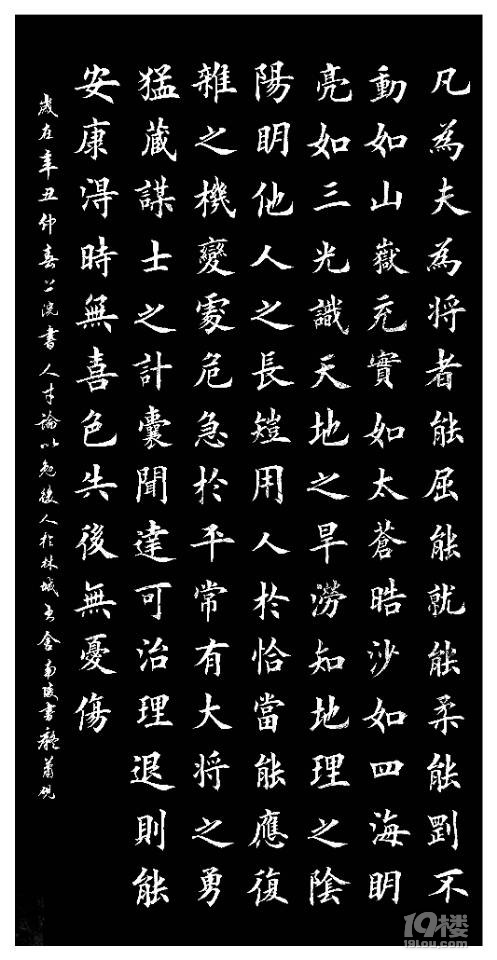 凡為夫為将者能屈能就能柔能剛不
動如山嶽充實如太蒼晧沙如四海眀
亮如三光識天地之旱澇知地理之陰
陽眀他人之長短用人於恰當能應復
雜之機變處危急於平常有大将之勇
猛蔵謀士之計囊聞達可治理退則能
安康淂時無喜色失後無憂傷
歲在辛丑仲春上浣書人才論以勉後人於林城書舍南陵書
19楼
19lou.com